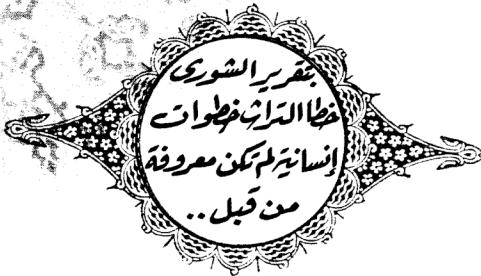 بتقرير الشورى
خطا التراث خطوات
إنسانية لم تكن معروفة
من قبل ..